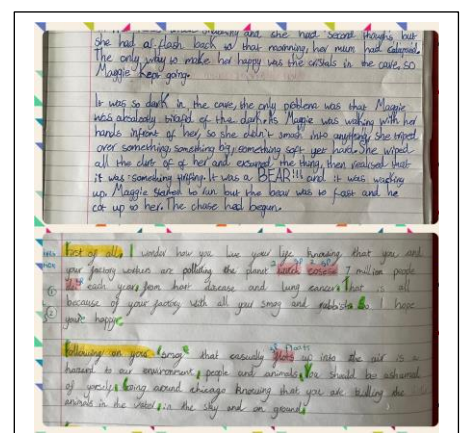 and she had second thoughs but
she had a flash back to that moarning, her mum had
The only way to make her happy was the cristals in the cave, so
Maggie kept going.
It was so dark in the cave, the only problem was that Maggie
was alreaday of the dark. As Maggie was walking with her
hands infront of her, so she didn't smash into anything she triped
over something, something big, something soft yet hard. She wiped
all the dirt of of her and the thing, then realised that
it was something It was a BEAR!!! and it was wacking
up. Maggie started to run but the bear was to fast and he
cat up to her. The chase had begun.
First of all, I wonder how you live your life knowing that you and
your factory workers are polluting the planet 7 million people
each year, from hart disease and lung cancer. That is all
because of your factory with all your smog and So I hope
you're happy.
Following on your "smog" that casually up into the air is a
hazard to our environment, people and animals. You should be ashamed
of going around chicago knowing that you are killing the
animals in the in the sky and on ground.